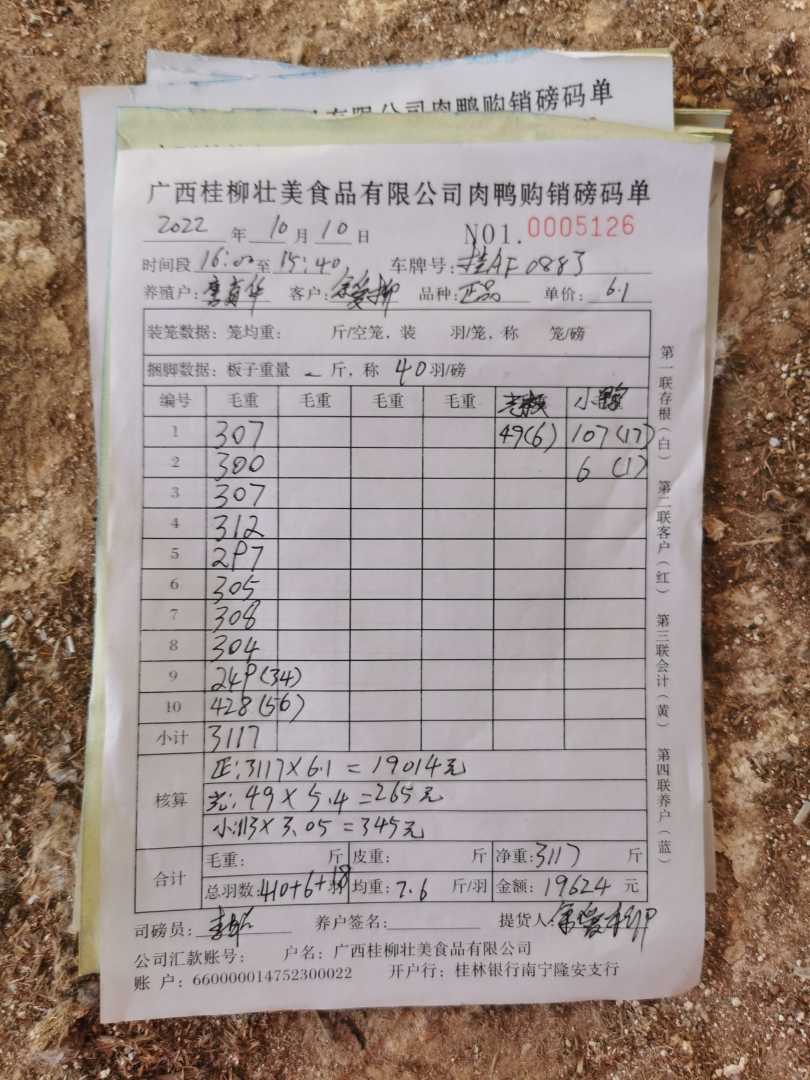 有限公司肉鸭购销磅码单
广西桂柳壮美食品有限公司肉鸭购销磅码单
2022 年 10 月 10 日 NO1. 0005126
时间段 16:00 至 15:40 车牌号: 桂AF0883
养殖户: 客户: 品种: 正品 单价: 6.1
装笼数据: 笼均重: 斤/空笼, 装 羽/笼, 称 笼/磅
捆脚数据: 板子重量 - 斤, 称 40 羽/磅
编号 毛重 毛重 毛重 毛重 小鸭
1 307 49(6) 107(17)
2 300 6 (1)
3 307
4 312
5 297
6 305
7 308
8 304
9 249(34)
10 428(56)
小计 3117
核算 正:3117×6.1=19014元
光:49×5.4=265元
小:113×3.05=345元
合计 毛重: 斤 皮重: 斤 净重: 3117 斤
总羽数: 410+6+18 羽 均重: 7.6 斤/羽 金额: 19624 元
司磅员: 养户签名: 提货人:
公司汇款账号: 户名: 广西桂柳壮美食品有限公司
账 户: 660000014752300022 开户行: 桂林银行南宁隆安支行
第一联存根(白) 第二联客户(红) 第三联会计(黄) 第四联养户(蓝)